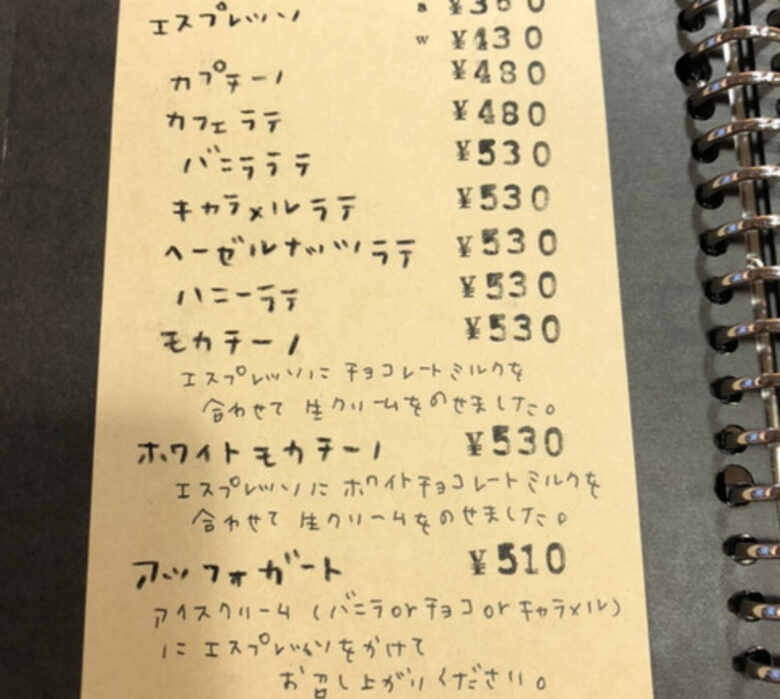 エスプレッソ s ¥360
w ¥430
カプチーノ ¥480
カフェラテ ¥480
バニララテ ¥530
キャラメルラテ ¥530
ヘーゼルナッツラテ ¥530
ハニーラテ ¥530
モカチーノ ¥530
エスプレッソに チョコレートミルクを
合わせて 生クリームをのせました。
ホワイトモカチーノ ¥530
エスプレッソに ホワイトチョコレートミルクを
合わせて 生クリームをのせました。
アッフォガート ¥510
アイスクリーム (バニラorチョコorキャラメル)
に エスプレッソをかけて
お召し上がりください。